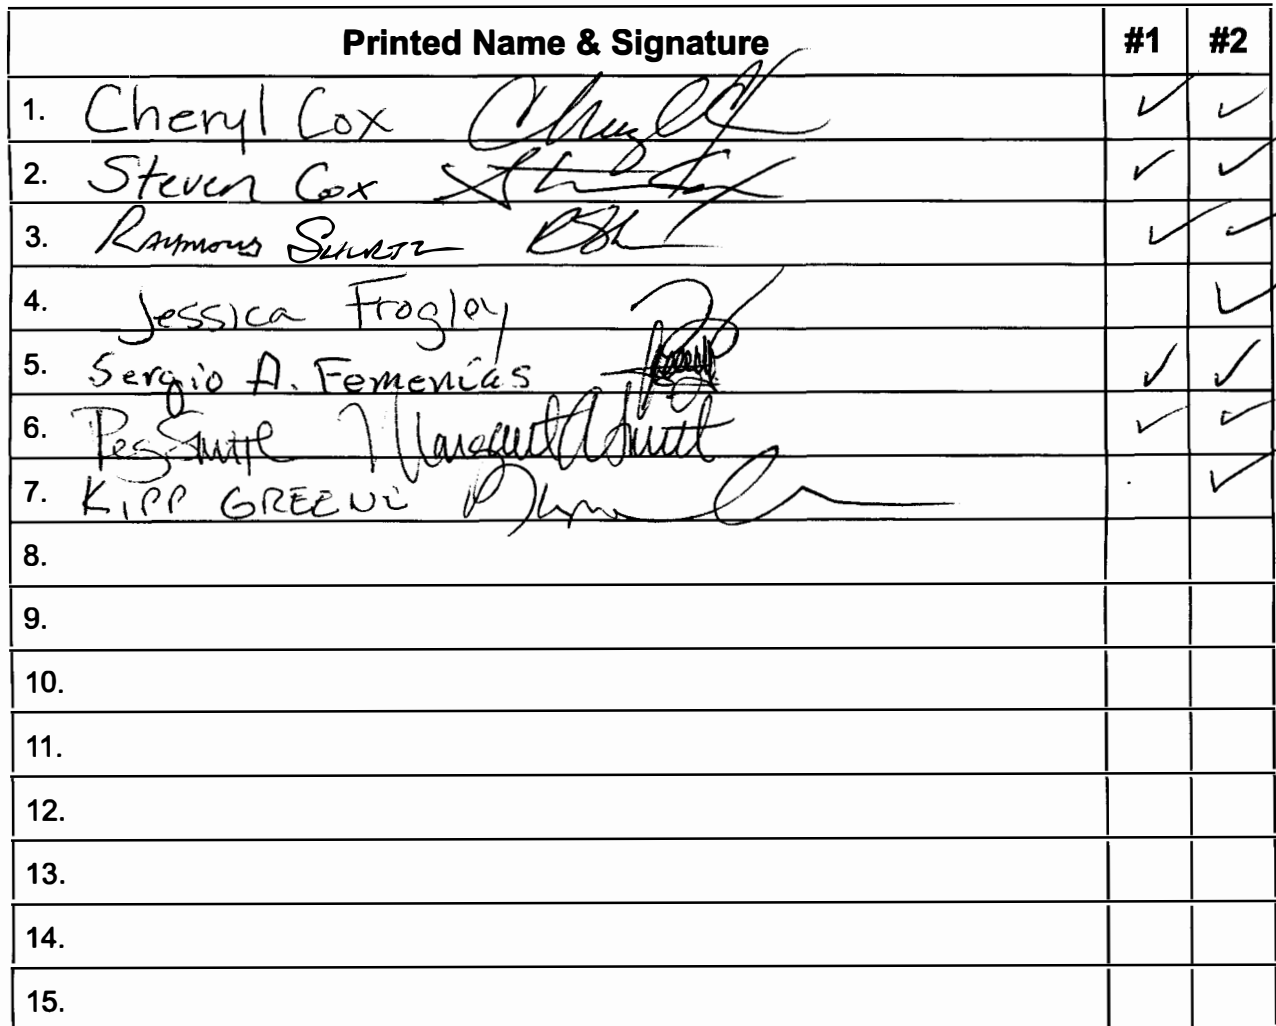 Printed Name & Signature #1 #2
1. Cheryl Cox ✓ ✓
2. Steven Cox ✓ ✓
3. Raymond Shurtz ✓ ✓
4. Jessica Frogley ✓
5. Sergio A. Femenías ✓ ✓
6. Peg Smith Margaret A Smith ✓ ✓
7. KIPP GREENE ✓
8.
9.
10.
11.
12.
13.
14.
15.